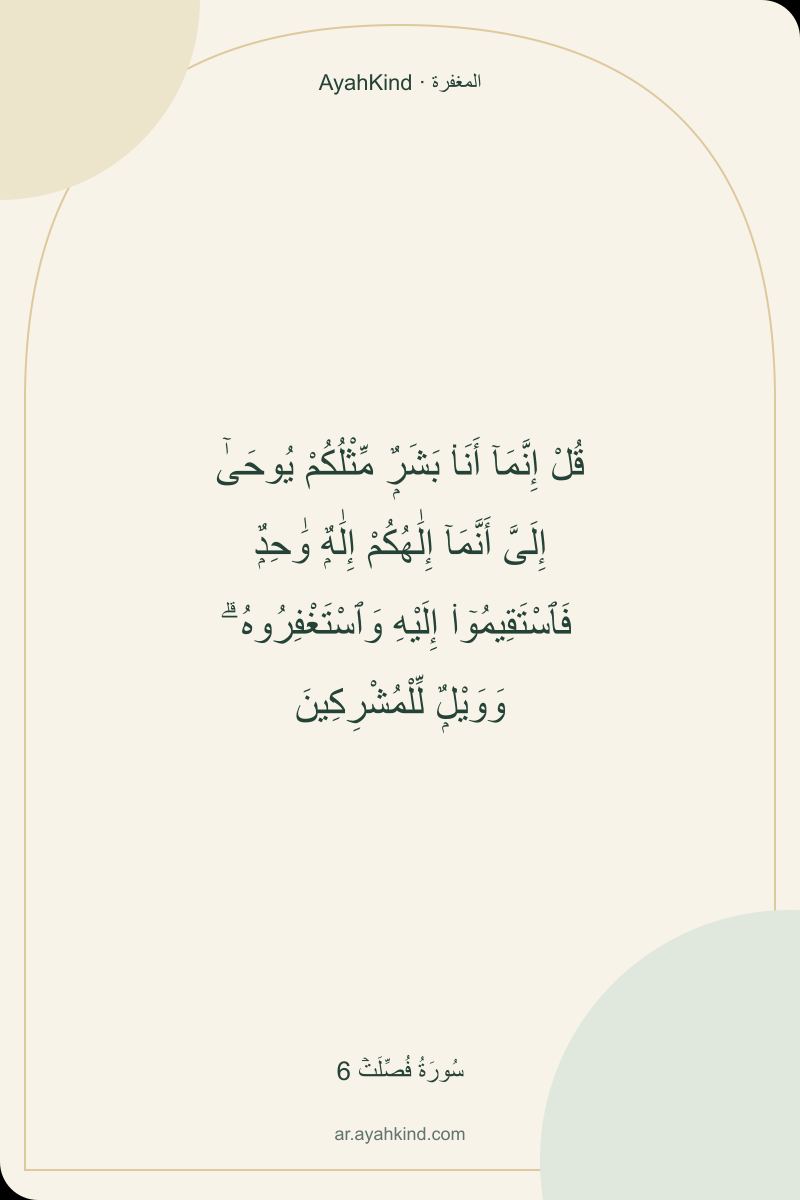 AyahKind · المغفرة
قُلْ إِنَّمَآ أَنَا۠ بَشَرٌۭ مِّثْلُكُمْ يُوحَىٰٓ
إِلَىَّ أَنَّمَآ إِلَٰهُكُمْ إِلَٰهٌۭ وَٰحِدٌۭ
فَٱسْتَقِيمُوٓا۟ إِلَيْهِ وَٱسْتَغْفِرُوهُ ۗ
وَوَيْلٌۭ لِّلْمُشْرِكِينَ
سُورَةُ فُصِّلَتۡ 6
ar.ayahkind.com